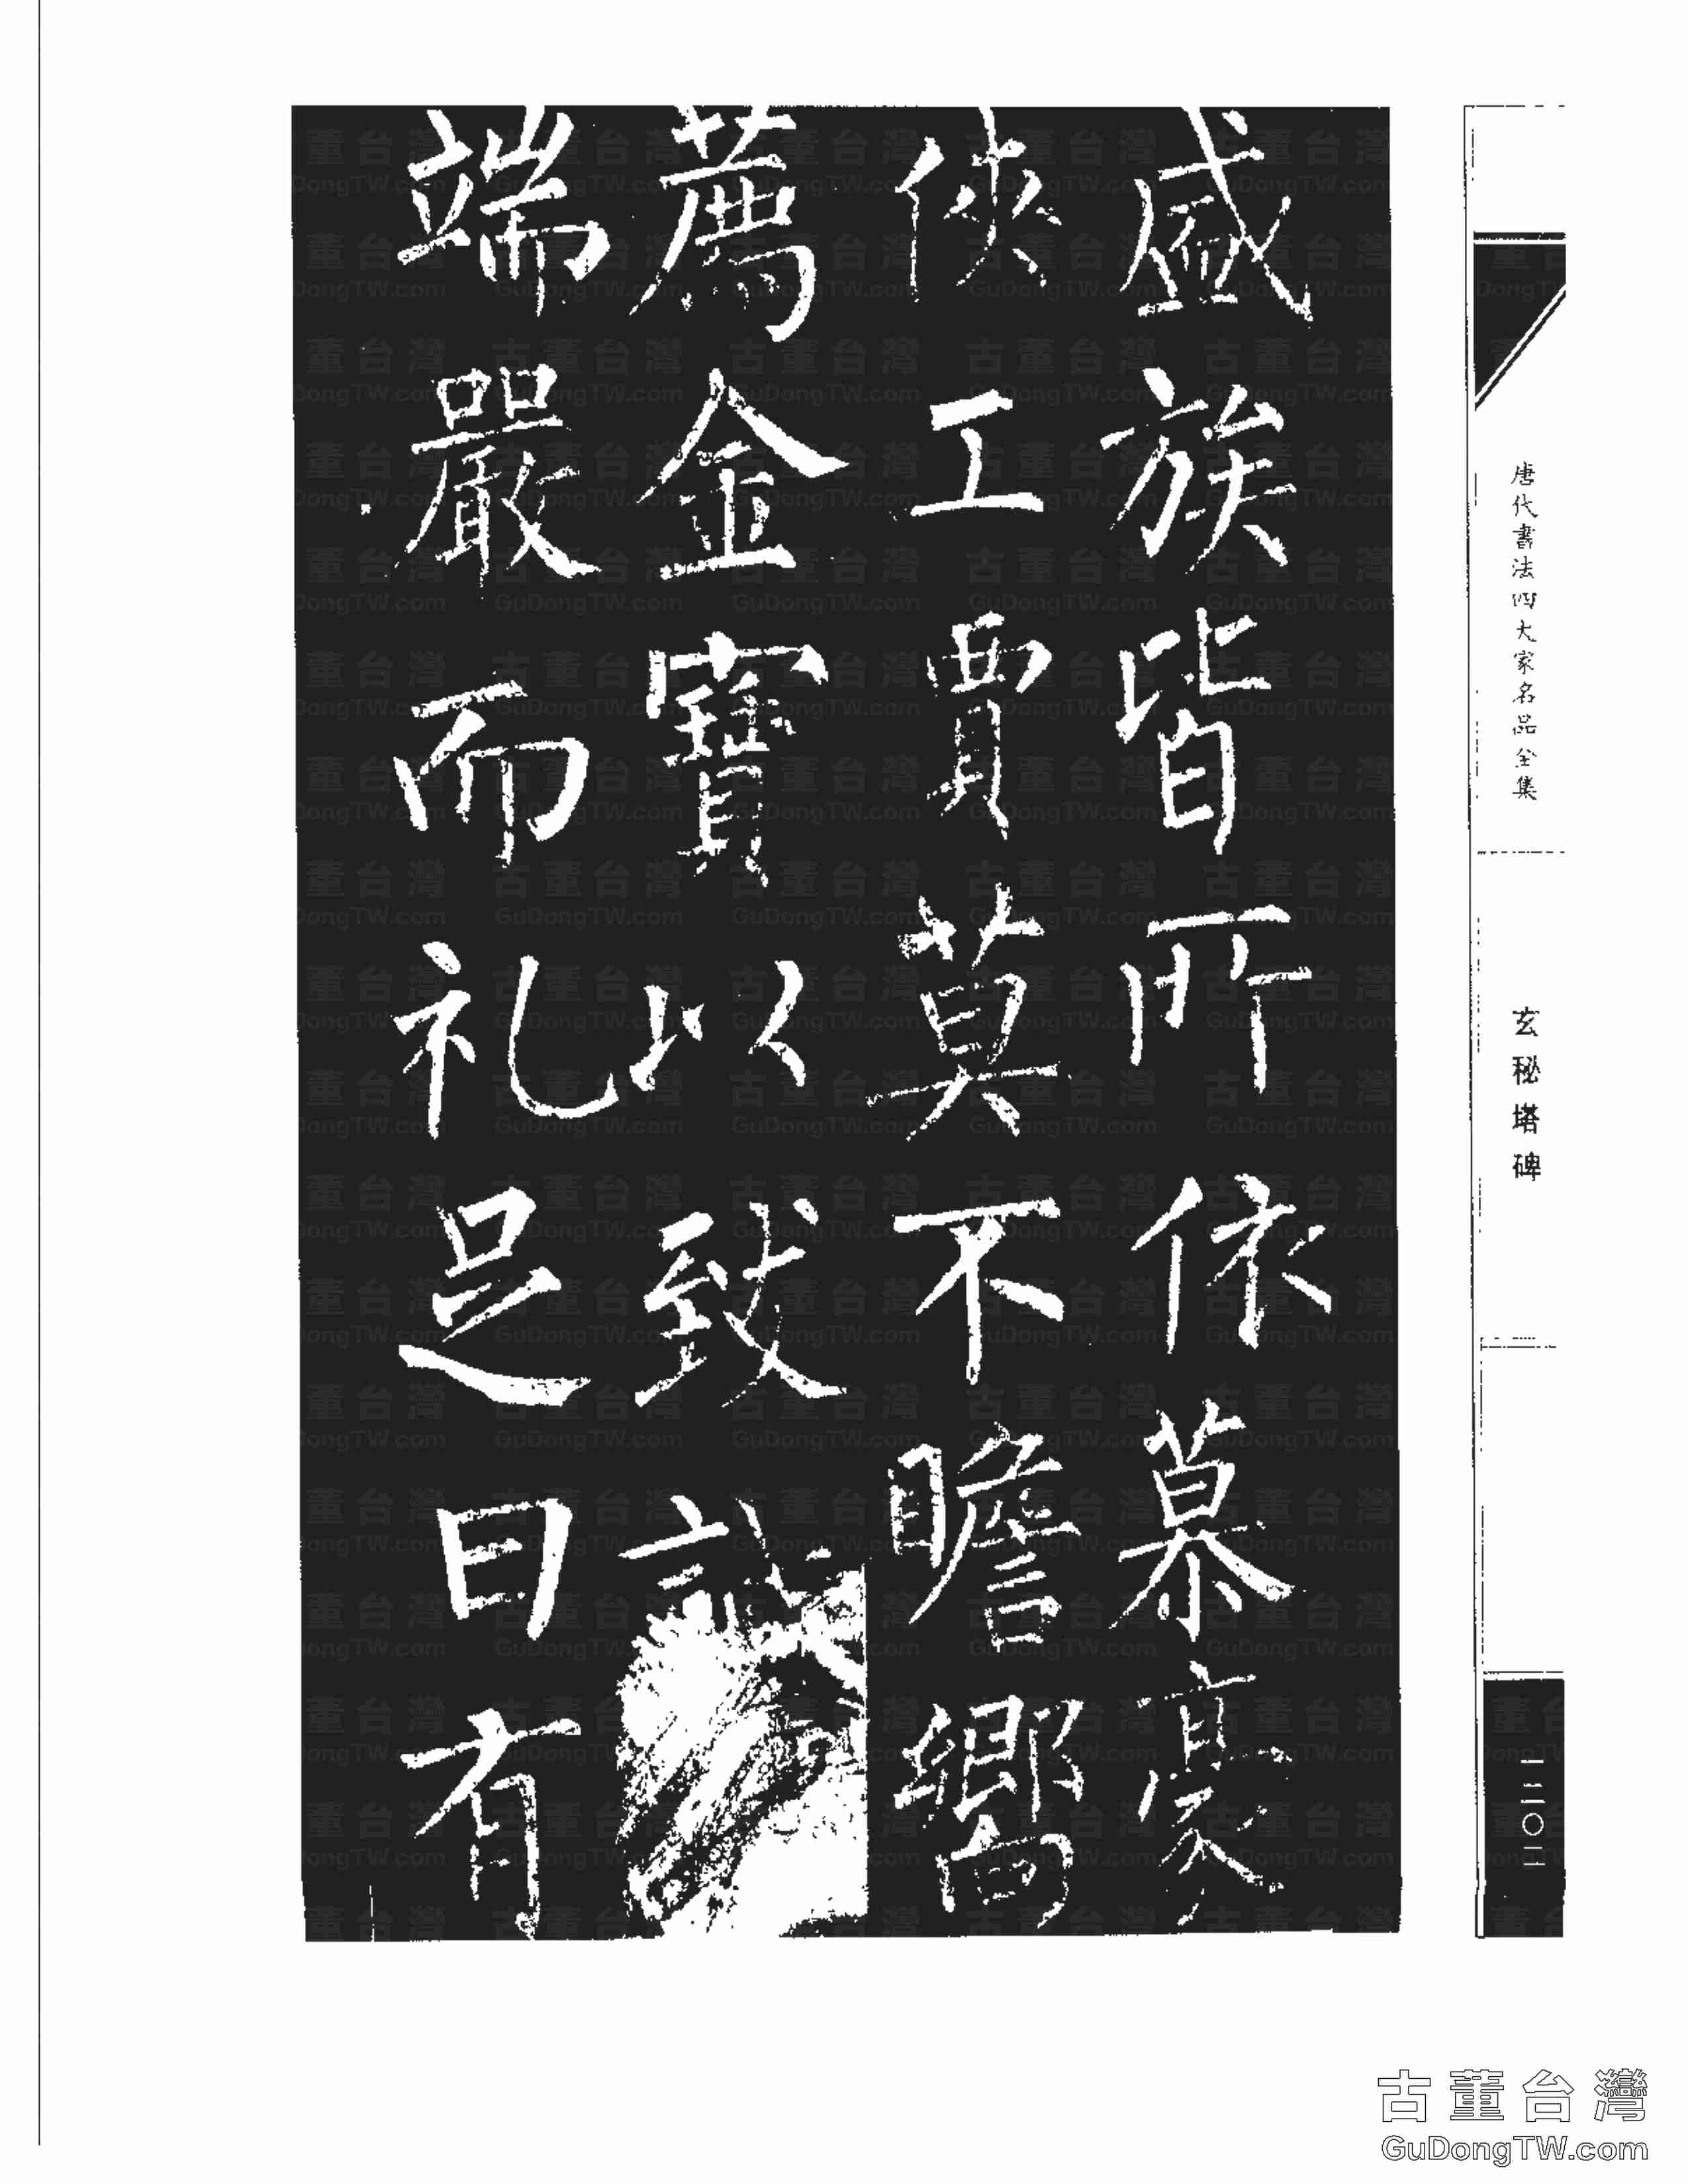 盛族皆所依慕豪
俠工賈莫不瞻嚮
薦金寶以致誠
端嚴而礼足日有
唐代書法四大家名品全集
玄秘塔碑
古董台灣
GuDongTW.com